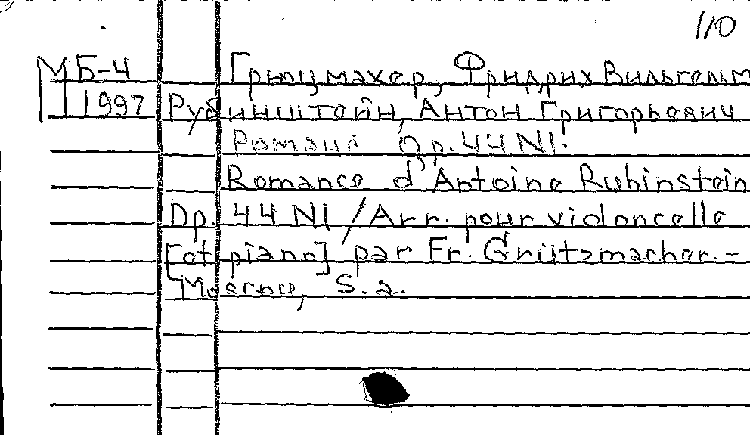 110
МБ-4 Грюцмахер, Фридрих Вильгельм
1997 Рубинштейн, Антон Григорьевич
Романс Op. 44 N1.
Romance d'Antoine Rubinstein
Op. 44 N1 / Arr. pour violoncelle
[et piano] par Fr. Grützmacher. -
Moscou, S. a.